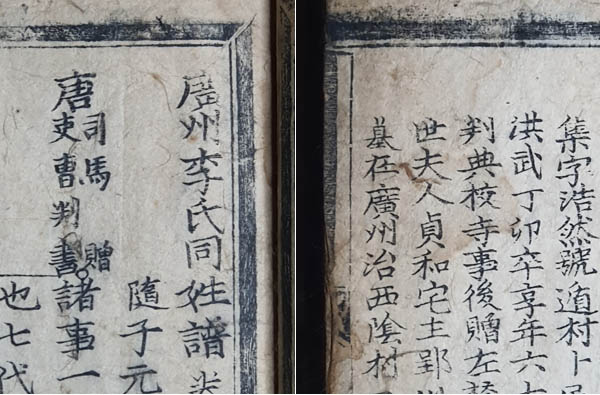 廣州李氏同姓譜
隨子元
唐
司馬 贈
吏曹判書
諸事一
也七代
集字浩然號遁村卜
洪武丁卯卒享年六
判典校寺事後贈左
世夫人貞和宅主
墓在廣州治西陰村